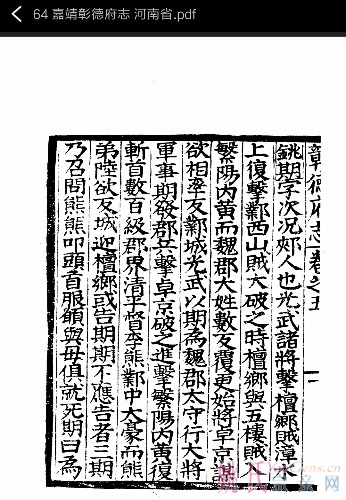 64 嘉靖彰德府志 河南省.pdf
彰德府志卷之五
銚期字次况郟人也光武諸將擊檀鄉賊漳水
上復擊鄴西山賊大破之時檀鄉與五樓賊
繁陽内黄而魏郡大姓數反覆更始將卓京
欲相率反鄴城光武以期為魏郡太守行大將
軍事期發郡兵擊卓京破之進擊繁陽内黄復
斬首數百級郡界清平督李熊鄴中大豪而熊
弟陸欲反城迎檀鄉或告期期不應告者三期
乃召問熊熊叩頭首服願與母俱就死期曰為